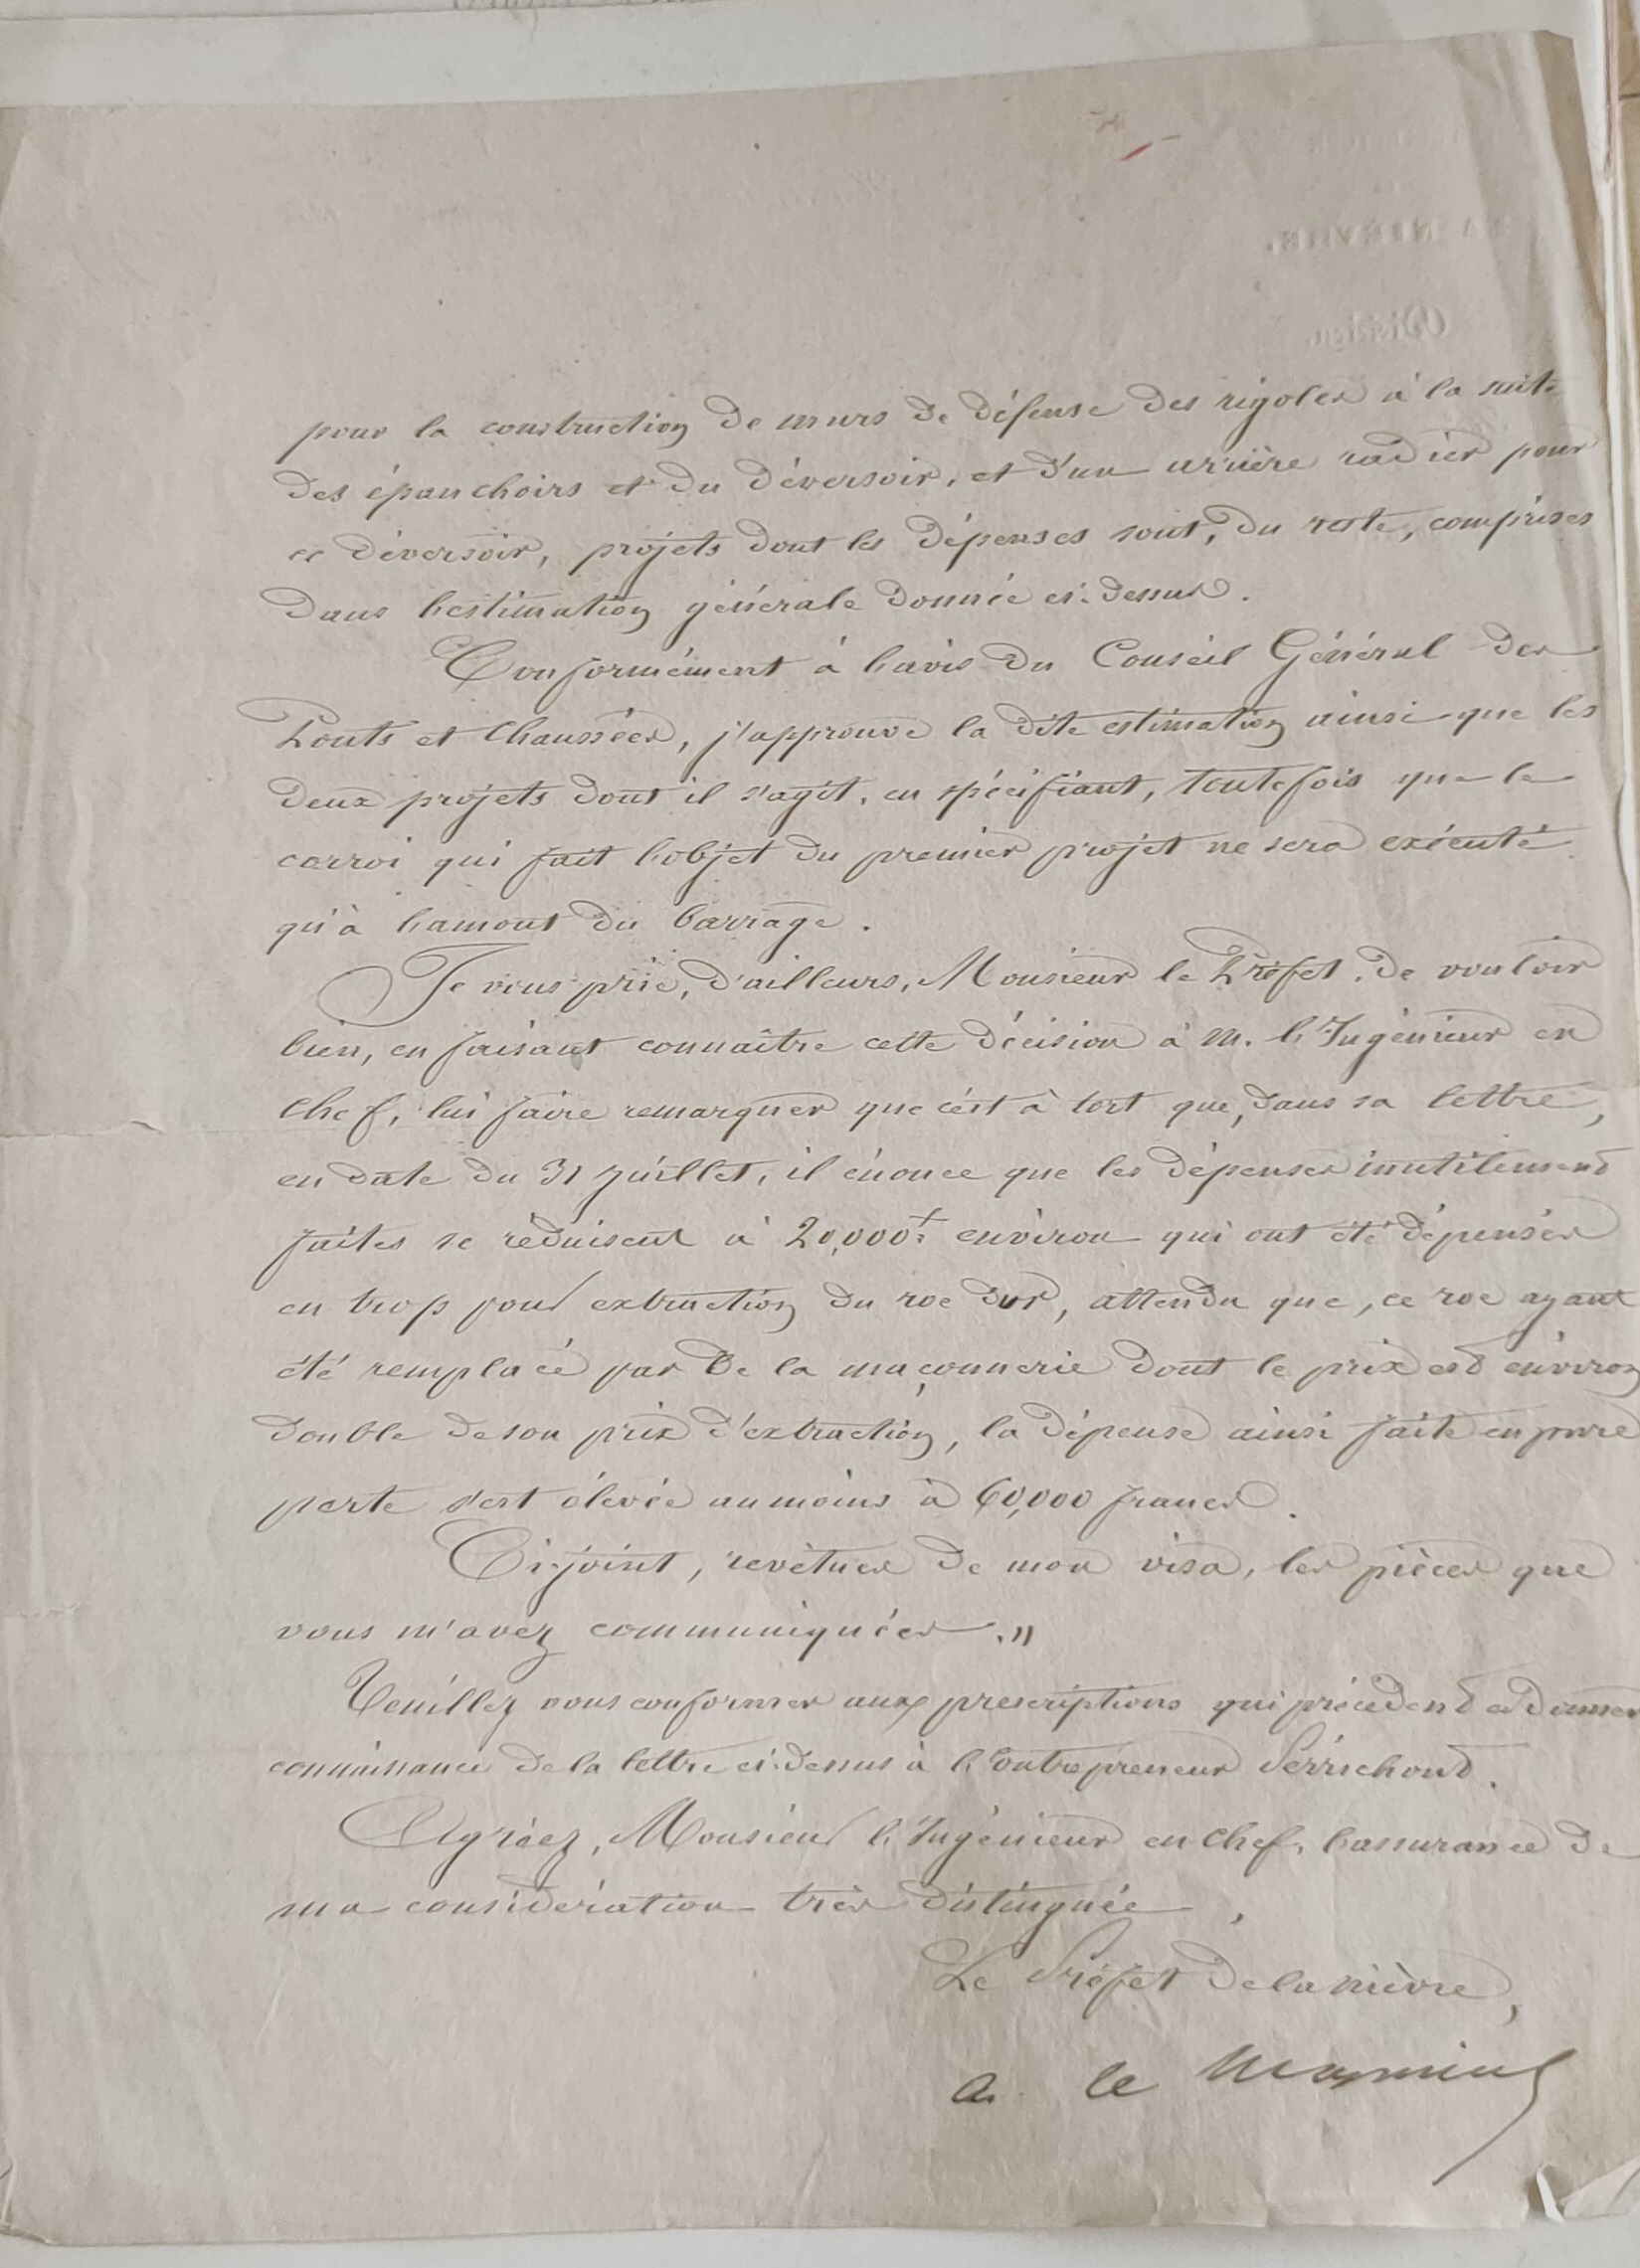 pour la construction de murs de défense des rigoles à la suite
des épanchoirs et du déversoir, et d'un arrière radier pour
ce déversoir, projets dont les dépenses sont, du reste, comprises
dans l'estimation générale donnée ci-dessus.
Conformément à l'avis du Conseil Général des
Ponts et Chaussées, j'approuve la dite estimation ainsi que les
deux projets dont il s'agit, en spécifiant, toutefois que le
corroi qui fait l'objet du premier projet ne sera exécuté
qu'à l'amont du barrage.
Je vous prie, d'ailleurs, Monsieur le Préfet, de vouloir
bien, en faisant connaître cette décision à M. l'Ingénieur en
Chef, lui faire remarquer que c'est à tort que, dans sa lettre,
en date du 31 juillet, il énonce que les dépenses inutilement
faites se réduisent à 20,000f environ qui ont été dépensés
en trop pour extraction du roc dur, attendu que, ce roc ayant
été remplacé par de la maçonnerie dont le prix est environ
double de son prix d'extraction, la dépense ainsi faite en pure
perte s'est élevée au moins à 60,000 francs.
Ci-joint, revêtues de mon visa, les pièces que
vous m'avez communiquées. »
Veuillez vous conformer aux prescriptions qui précèdent et donner
connaissance de la lettre ci-dessus à l'Entrepreneur
Agréez, Monsieur l'Ingénieur en Chef, l'assurance de
ma considération très distinguée,
Le Préfet de la Nièvre,
a. le
LA NIÈVRE.
Division.